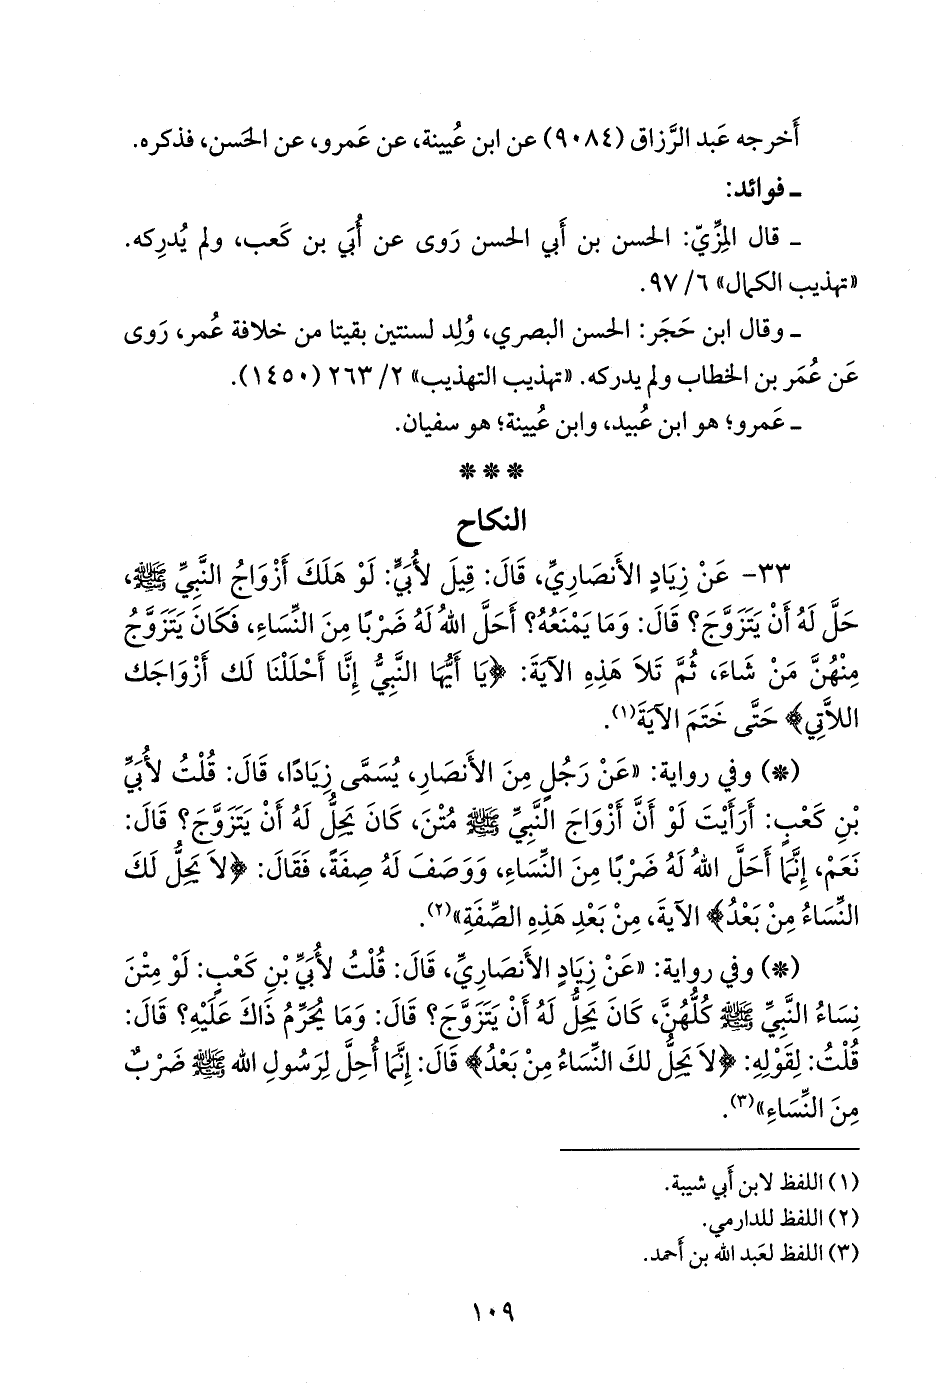 أَخرجه عَبد الرَّزاق (٩٠٨٤) عن ابن عُيينة، عن عَمرو، عن الحَسن، فذكره.
ـ فوائد:
ـ قال المِزِّيّ: الحسن بن أَبي الحسن رَوى عن أُبَي بن كَعب، ولم يُدرِكه.
«تهذيب الكمال» ٦/ ٩٧.
ـ وقال ابن حَجَر: الحسن البصري، وُلِد لسنتين بقيتا من خلافة عُمر، رَوى
عَن عُمَر بن الخطاب ولم يدركه. «تهذيب التهذيب» ٢/ ٢٦٣ (١٤٥٠).
ـ عَمرو؛ هو ابن عُبيد، وابن عُيينة؛ هو سفيان.
* * *
النكاح
٣٣- عَنْ زِيَادٍ الأَنصَارِيِّ، قَالَ: قِيلَ لأُبَيٍّ: لَوْ هَلَكَ أَزْوَاجُ النَّبِيِّ ﷺ،
حَلَّ لَهُ أَنْ يَتَزَوَّجَ؟ قَالَ: وَمَا يَمْنَعُهُ؟ أَحَلَّ اللهُ لَهُ ضَرْبًا مِنَ النِّسَاءِ، فَكَانَ يَتَزَوَّجُ
مِنْهُنَّ مَنْ شَاءَ، ثُمَّ تَلاَ هَذِهِ الآيَةَ: ﴿يَا أَيُّهَا النَّبِيُّ إِنَّا أَحْلَلْنَا لَك أَزْوَاجَك
اللاَّتِي﴾ حَتَّى خَتَمَ الآيَةَ(١).
(*) وفي رواية: «عَنْ رَجُلٍ مِنَ الأَنصَارِ، يُسَمَّى زِيَادًا، قَالَ: قُلْتُ لأُبَيِّ
بْنِ كَعْبٍ: أَرَأَيْتَ لَوْ أَنَّ أَزْوَاجَ النَّبِيِّ ﷺ مُتْنَ، كَانَ يَحِلُّ لَهُ أَنْ يَتَزَوَّجَ؟ قَالَ:
نَعَمْ، إِنَّمَا أَحَلَّ اللهُ لَهُ ضَرْبًا مِنَ النِّسَاءِ، وَوَصَفَ لَهُ صِفَةً، فَقَالَ: ﴿لاَ يَحِلُّ لَكَ
النِّسَاءُ مِنْ بَعْدُ﴾ الآيةَ، مِنْ بَعْدِ هَذِهِ الصِّفَةِ»(٢).
(*) وفي رواية: «عَنْ زِيَادٍ الأَنصَارِيِّ، قَالَ: قُلْتُ لأُبَيِّ بْنِ كَعْبٍ: لَوْ مِتْنَ
نِسَاءُ النَّبِيِّ ﷺ كُلُّهُنَّ، كَانَ يَحِلُّ لَهُ أَنْ يَتَزَوَّجَ؟ قَالَ: وَمَا يُحَرِّمُ ذَاكَ عَلَيْهِ؟ قَالَ:
قُلْتُ: لِقَوْلِهِ: ﴿لاَ يَحِلُّ لكَ النِّسَاءُ مِنْ بَعْدُ﴾ قَالَ: إِنَّمَا أُحِلَّ لِرَسُولِ الله ﷺ ضَرْبٌ
مِنَ النِّسَاءِ»(٣).
(١) اللفظ لابن أَبي شيبة.
(٢) اللفظ للدارمي.
(٣) اللفظ لعَبد الله بن أَحمد.
١٠٩